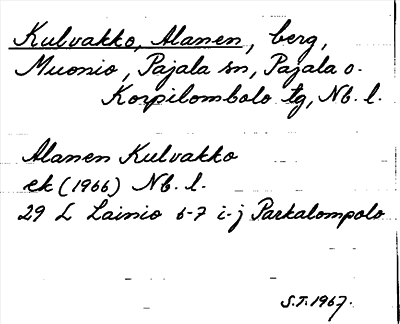 Kulvakko, Alanen, berg,
Muonio, Pajala sn, Pajala o.
Korpilombolo tg, Nb. l.
Alanen Kulvakko
ek (1966) Nb. l.
29 L Lainio 6-7 i-j Parkalompolo
S.T. 1967.